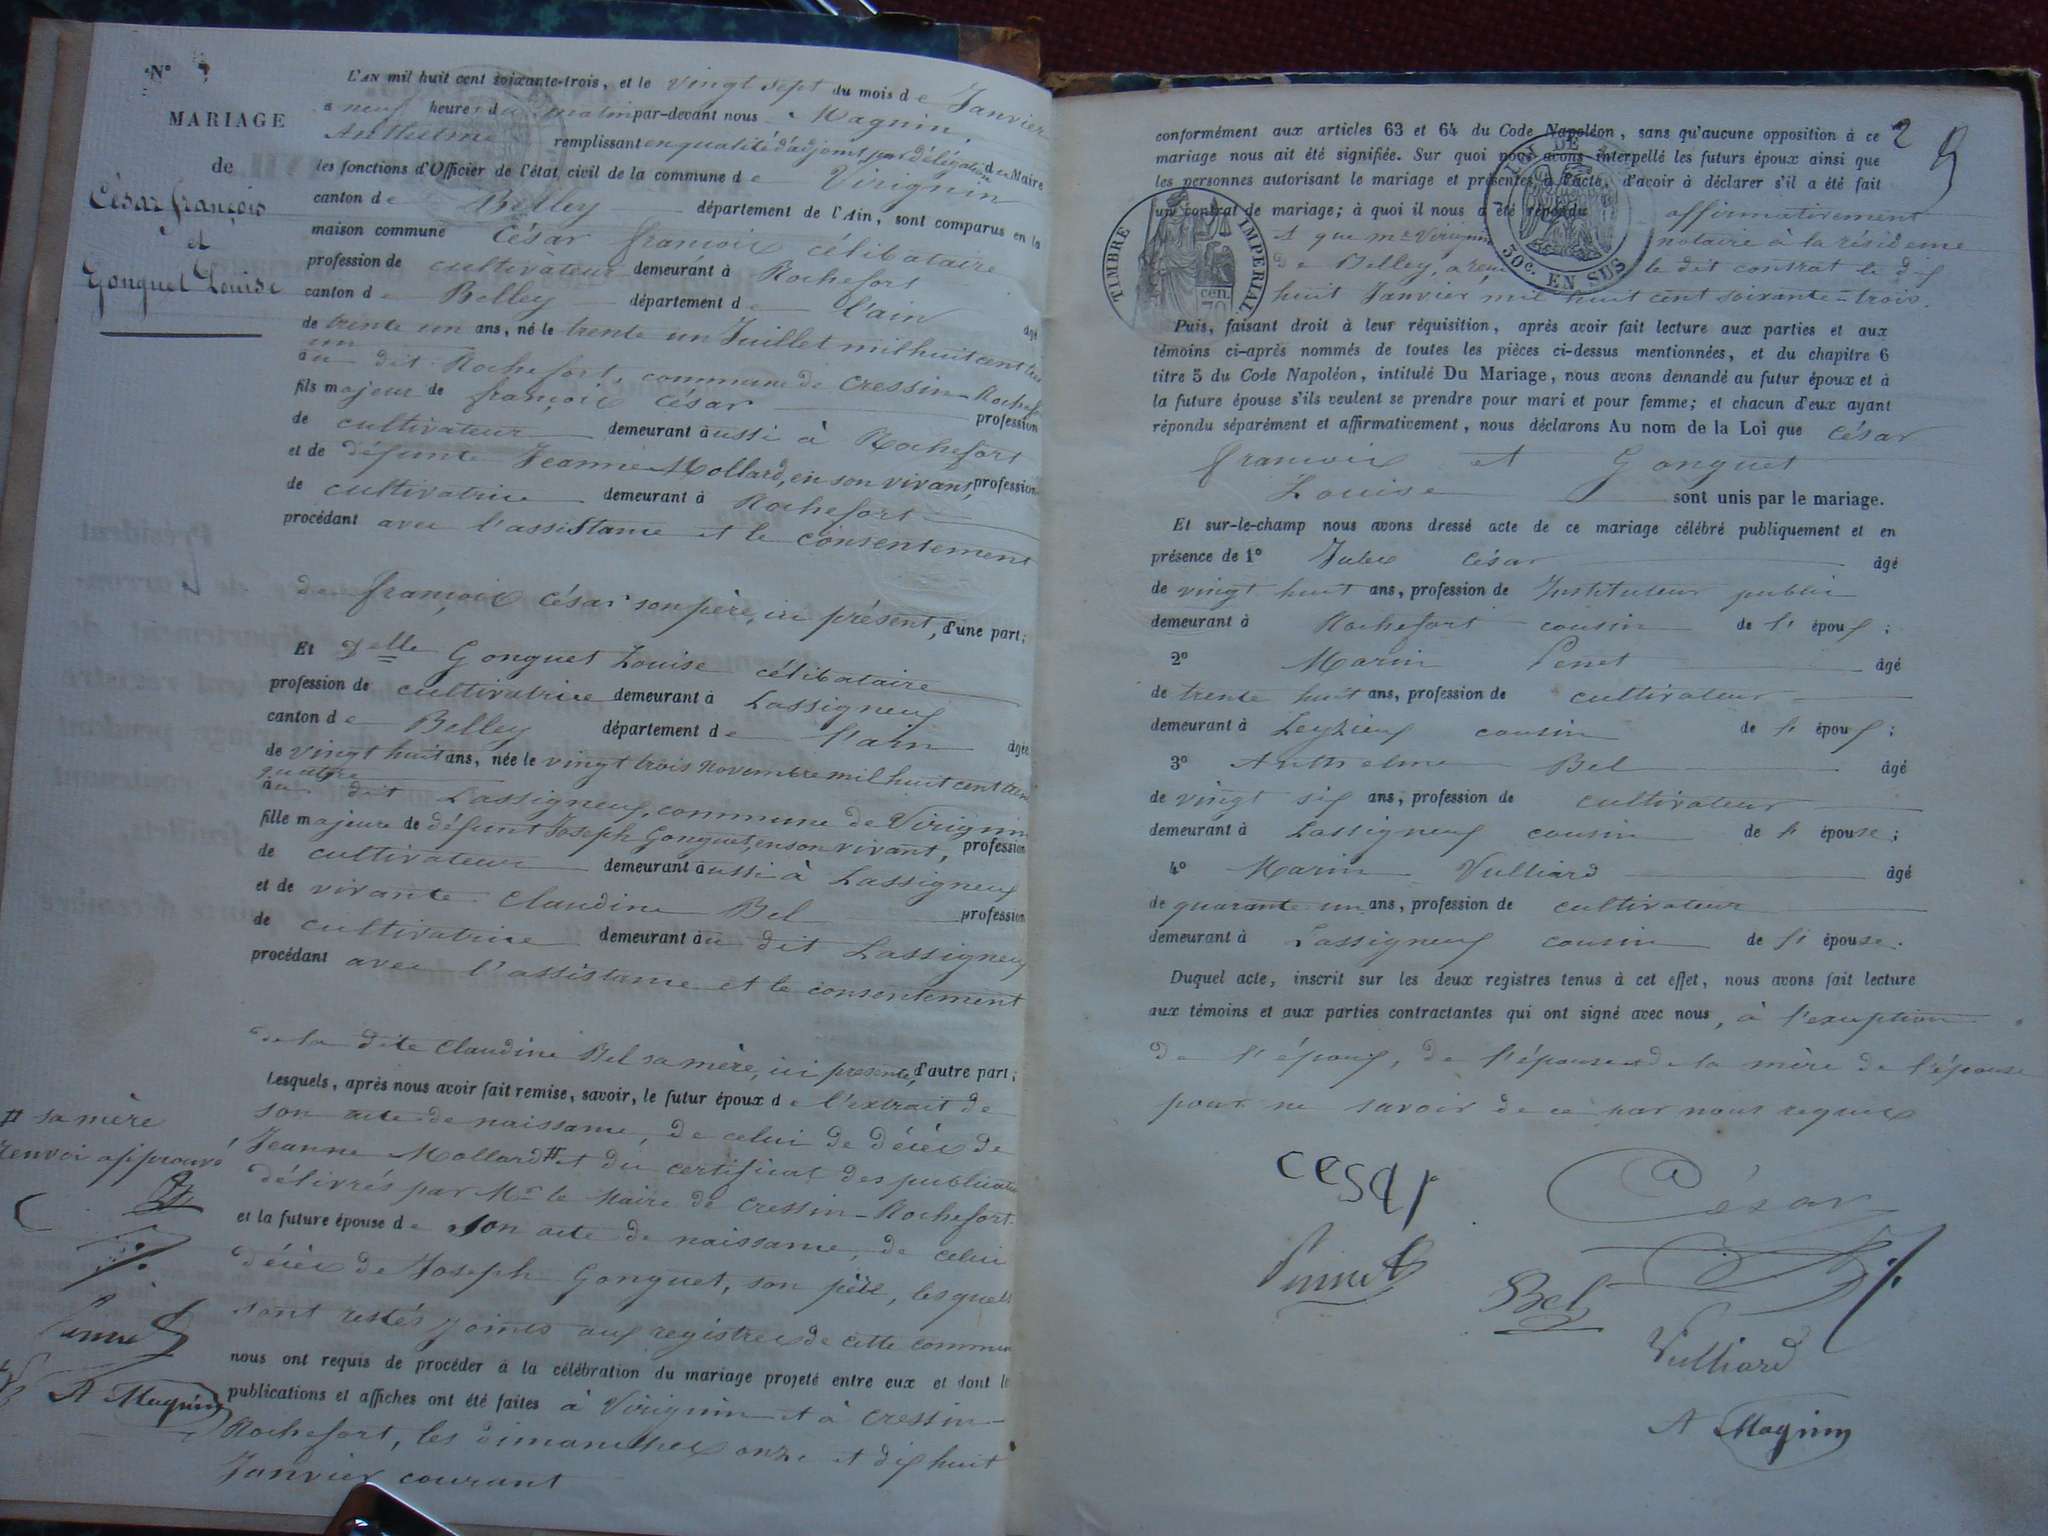 N°
MARIAGE
de
César françois
et
Gonguet Louise
L'AN mil huit cent soixante-trois, et le vingt sept du mois de Janvier
a neuf heures du matin par-devant nous Magnin
Anthelme remplissant en qualité d'adjoint par délégation du Maire
les fonctions d'Officier de l'état civil de la commune de Virignin
canton de Belley département de l'Ain, sont comparus en la
maison commune César françois célibataire
profession de cultivateur demeurant à Rochefort
canton de Belley département de l'ain âgé
de trente un ans, né le trente un Juillet mil huit cent trente
un
au dit Rochefort, commune de Cressin-Rochefort
fils majeur de françois César profession
de cultivateur demeurant aussi à Rochefort
et de défunte Jeanne Mollard, en son vivant, profession
de cultivatrice demeurant à Rochefort
procédant avec l'assistance et le consentement
de françois César son père, ici présent, d'une part;
Et Delle Gonguet Louise célibataire
profession de cultivatrice demeurant à Lassigneux
canton de Belley département de l'ain âgée
de vingt huit ans, née le vingt trois Novembre mil huit cent trente
quatre
au dit Lassigneux, commune de Virignin
fille majeure de défunt Joseph Gonguet, en son vivant, profession
de cultivateur demeurant aussi à Lassigneux
et de vivante Claudine Bel profession
de cultivatrice demeurant au dit Lassigneux
procédant avec l'assistance et le consentement
de la dite Claudine Bel sa mère, ici présente, d'autre part;
Lesquels, après nous avoir fait remise, savoir, le futur époux de l'extrait de
son acte de naissance, de celui de décès de
Jeanne Mollard # et du certificat des publications
délivrés par Mr le Maire de Cressin-Rochefort
et la future épouse de son acte de naissance, de celui
décès de Joseph Gonguet, son père, lesquels
sont restés joints aux registres de cette commune
nous ont requis de procéder à la célébration du mariage projeté entre eux et dont les
publications et affiches ont été faites à Virignin et à Cressin-
Rochefort, les dimanches onze et dix huit
Janvier courant
# sa mère
renvoi approuvé
Pennet
A Magnin
2
conformément aux articles 63 et 64 du Code Napoléon, sans qu'aucune opposition à ce
mariage nous ait été signifiée. Sur quoi nous avons interpellé les futurs époux ainsi que
les personnes autorisant le mariage et présentes à l'acte, d'avoir à déclarer s'il a été fait
un contrat de mariage; à quoi il nous a été répondu affirmativement
et que Me Virignin notaire à la résidence
de Belley, a reçu le dit contrat le dix
huit Janvier mil huit cent soixante-trois.
TIMBRE IMPERIAL
cen. 70
LOI DE
30c. EN SUS
Puis, faisant droit à leur réquisition, après avoir fait lecture aux parties et aux
témoins ci-après nommés de toutes les pièces ci-dessus mentionnées, et du chapitre 6
titre 5 du Code Napoléon, intitulé Du Mariage, nous avons demandé au futur époux et à
la future épouse s'ils veulent se prendre pour mari et pour femme; et chacun d'eux ayant
répondu séparément et affirmativement, nous déclarons Au nom de la Loi que César
françois et Gonguet
Louise sont unis par le mariage.
Et sur-le-champ nous avons dressé acte de ce mariage célébré publiquement et en
présence de 1° Jules César âgé
de vingt huit ans, profession de Instituteur public
demeurant à Rochefort cousin de l'époux;
2° Marin Penet âgé
de trente huit ans, profession de cultivateur
demeurant à Leyzieux cousin de l'époux;
3° Anthelme Bel âgé
de vingt six ans, profession de cultivateur
demeurant à Lassigneux cousin de l'épouse;
4° Marin Vulliard âgé
de quarante un ans, profession de cultivateur
demeurant à Lassigneux cousin de l'épouse.
Duquel acte, inscrit sur les deux registres tenus à cet effet, nous avons fait lecture
aux témoins et aux parties contractantes qui ont signé avec nous, à l'exception
de l'époux, de l'épouse et de la mère de l'épouse
pour ne savoir de ce par nous requis
cesar
César
Pennet
Bel
Vulliard
A Magnin